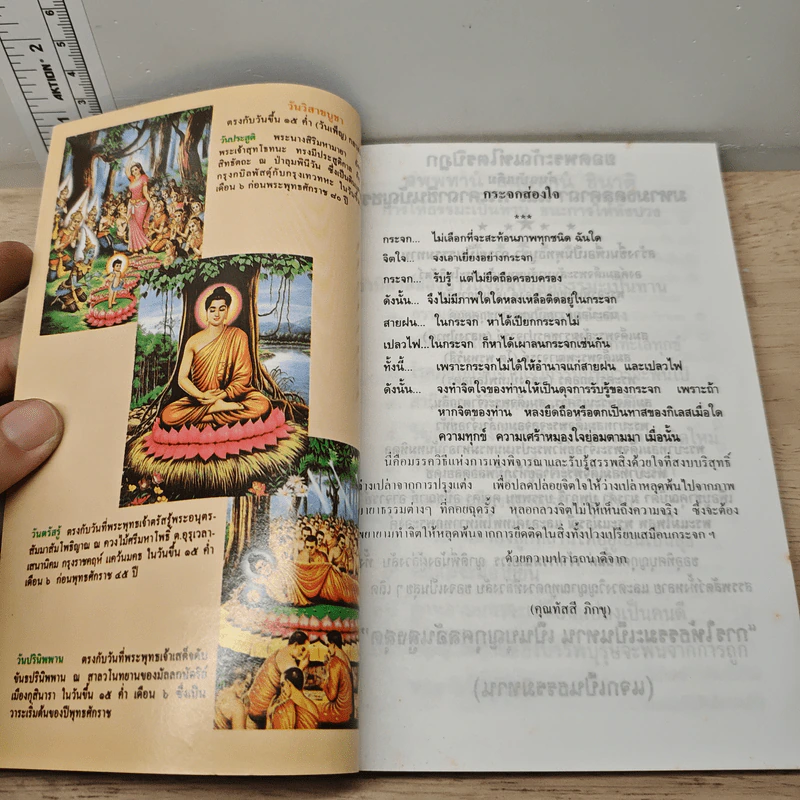 AKTION
2
4
5
6
วันวิสาขบูชา
ตรงกับวันขึ้น ๑๕ ค่ำ (วันเพ็ญ)
วันประสูติ พระนางสิริมหามายา
พระเจ้าสุทโธทนะ ทรงมีประสูติกาล
สิทธัตถะ ณ ป่าลุมพินีวัน ซึ่งเป็น
กรุงกบิลพัสดุ์กับกรุงเทวทหะ ในวัน
เดือน ๖ ก่อนพระพุทธศักราช ๘๐ ปี
วันตรัสรู้ ตรงกับวันที่พระพุทธเจ้าตรัสรู้พระอนุตร-
สัมมาสัมโพธิญาณ ณ ควงไม้ศรีมหาโพธิ ต.อุรุเวลา-
เสนานิคม กรุงราชคฤห์ แคว้นมคธ ในวันขึ้น ๑๕ ค่ำ
เดือน ๖ ก่อนพุทธศักราช ๔๕ ปี
วันปรินิพพาน ตรงกับวันที่พระพุทธเจ้าเสด็จดับ
ขันธปรินิพพาน ณ สาลวโนทยานของมัลลกษัตริย์
เมืองกุสินารา ในวันขึ้น ๑๕ ค่ำ เดือน ๖ ซึ่งเป็น
วาระเริ่มต้นของปีพุทธศักราช
กระจกส่องใจ
***
กระจก... ไม่เลือกที่จะสะท้อนภาพทุกชนิด ฉันใด
จิตใจ... จงเอาเยี่ยงอย่างกระจก
กระจก... รับรู้ แต่ไม่ยึดถือครอบครอง
ดังนั้น... จึงไม่มีภาพใดใดหลงเหลือติดอยู่ในกระจก
สายฝน... ในกระจก หาได้เปียกกระจกไม่
เปลวไฟ...ในกระจก ก็หาได้เผาลนกระจกเช่นกัน
ทั้งนี้... เพราะกระจกไม่ได้ให้อำนาจแก่สายฝน และเปลวไฟ
ดังนั้น... จงทำจิตใจของท่านให้เป็นดุจการรับรู้ของกระจก เพราะถ้า
หากจิตของท่าน หลงยึดถือหรือตกเป็นทาสของกิเลสเมื่อใด
ความทุกข์ ความเศร้าหมองใจย่อมตามมา เมื่อนั้น
นี่คือมรรควิธีแห่งการเพ่งพิจารณาและรับรู้สรรพสิ่งด้วยใจที่สงบบริสุทธิ์
ว่างเปล่าจากการปรุงแต่ง เพื่อปลดปล่อยจิตใจให้ว่างเปล่าหลุดพ้นไปจากภาพ
มายาธรรมต่างๆ ที่คอยฉุดรั้ง หลอกลวงจิตไม่ให้เห็นถึงความจริง ซึ่งจะต้อง
พยายามทำจิตให้หลุดพ้นจากการยึดติดในสิ่งทั้งปวงเปรียบเสมือนกระจก ฯ
ด้วยความปรารถนาดีจาก
(คุณทัสสี ภิกขุ)